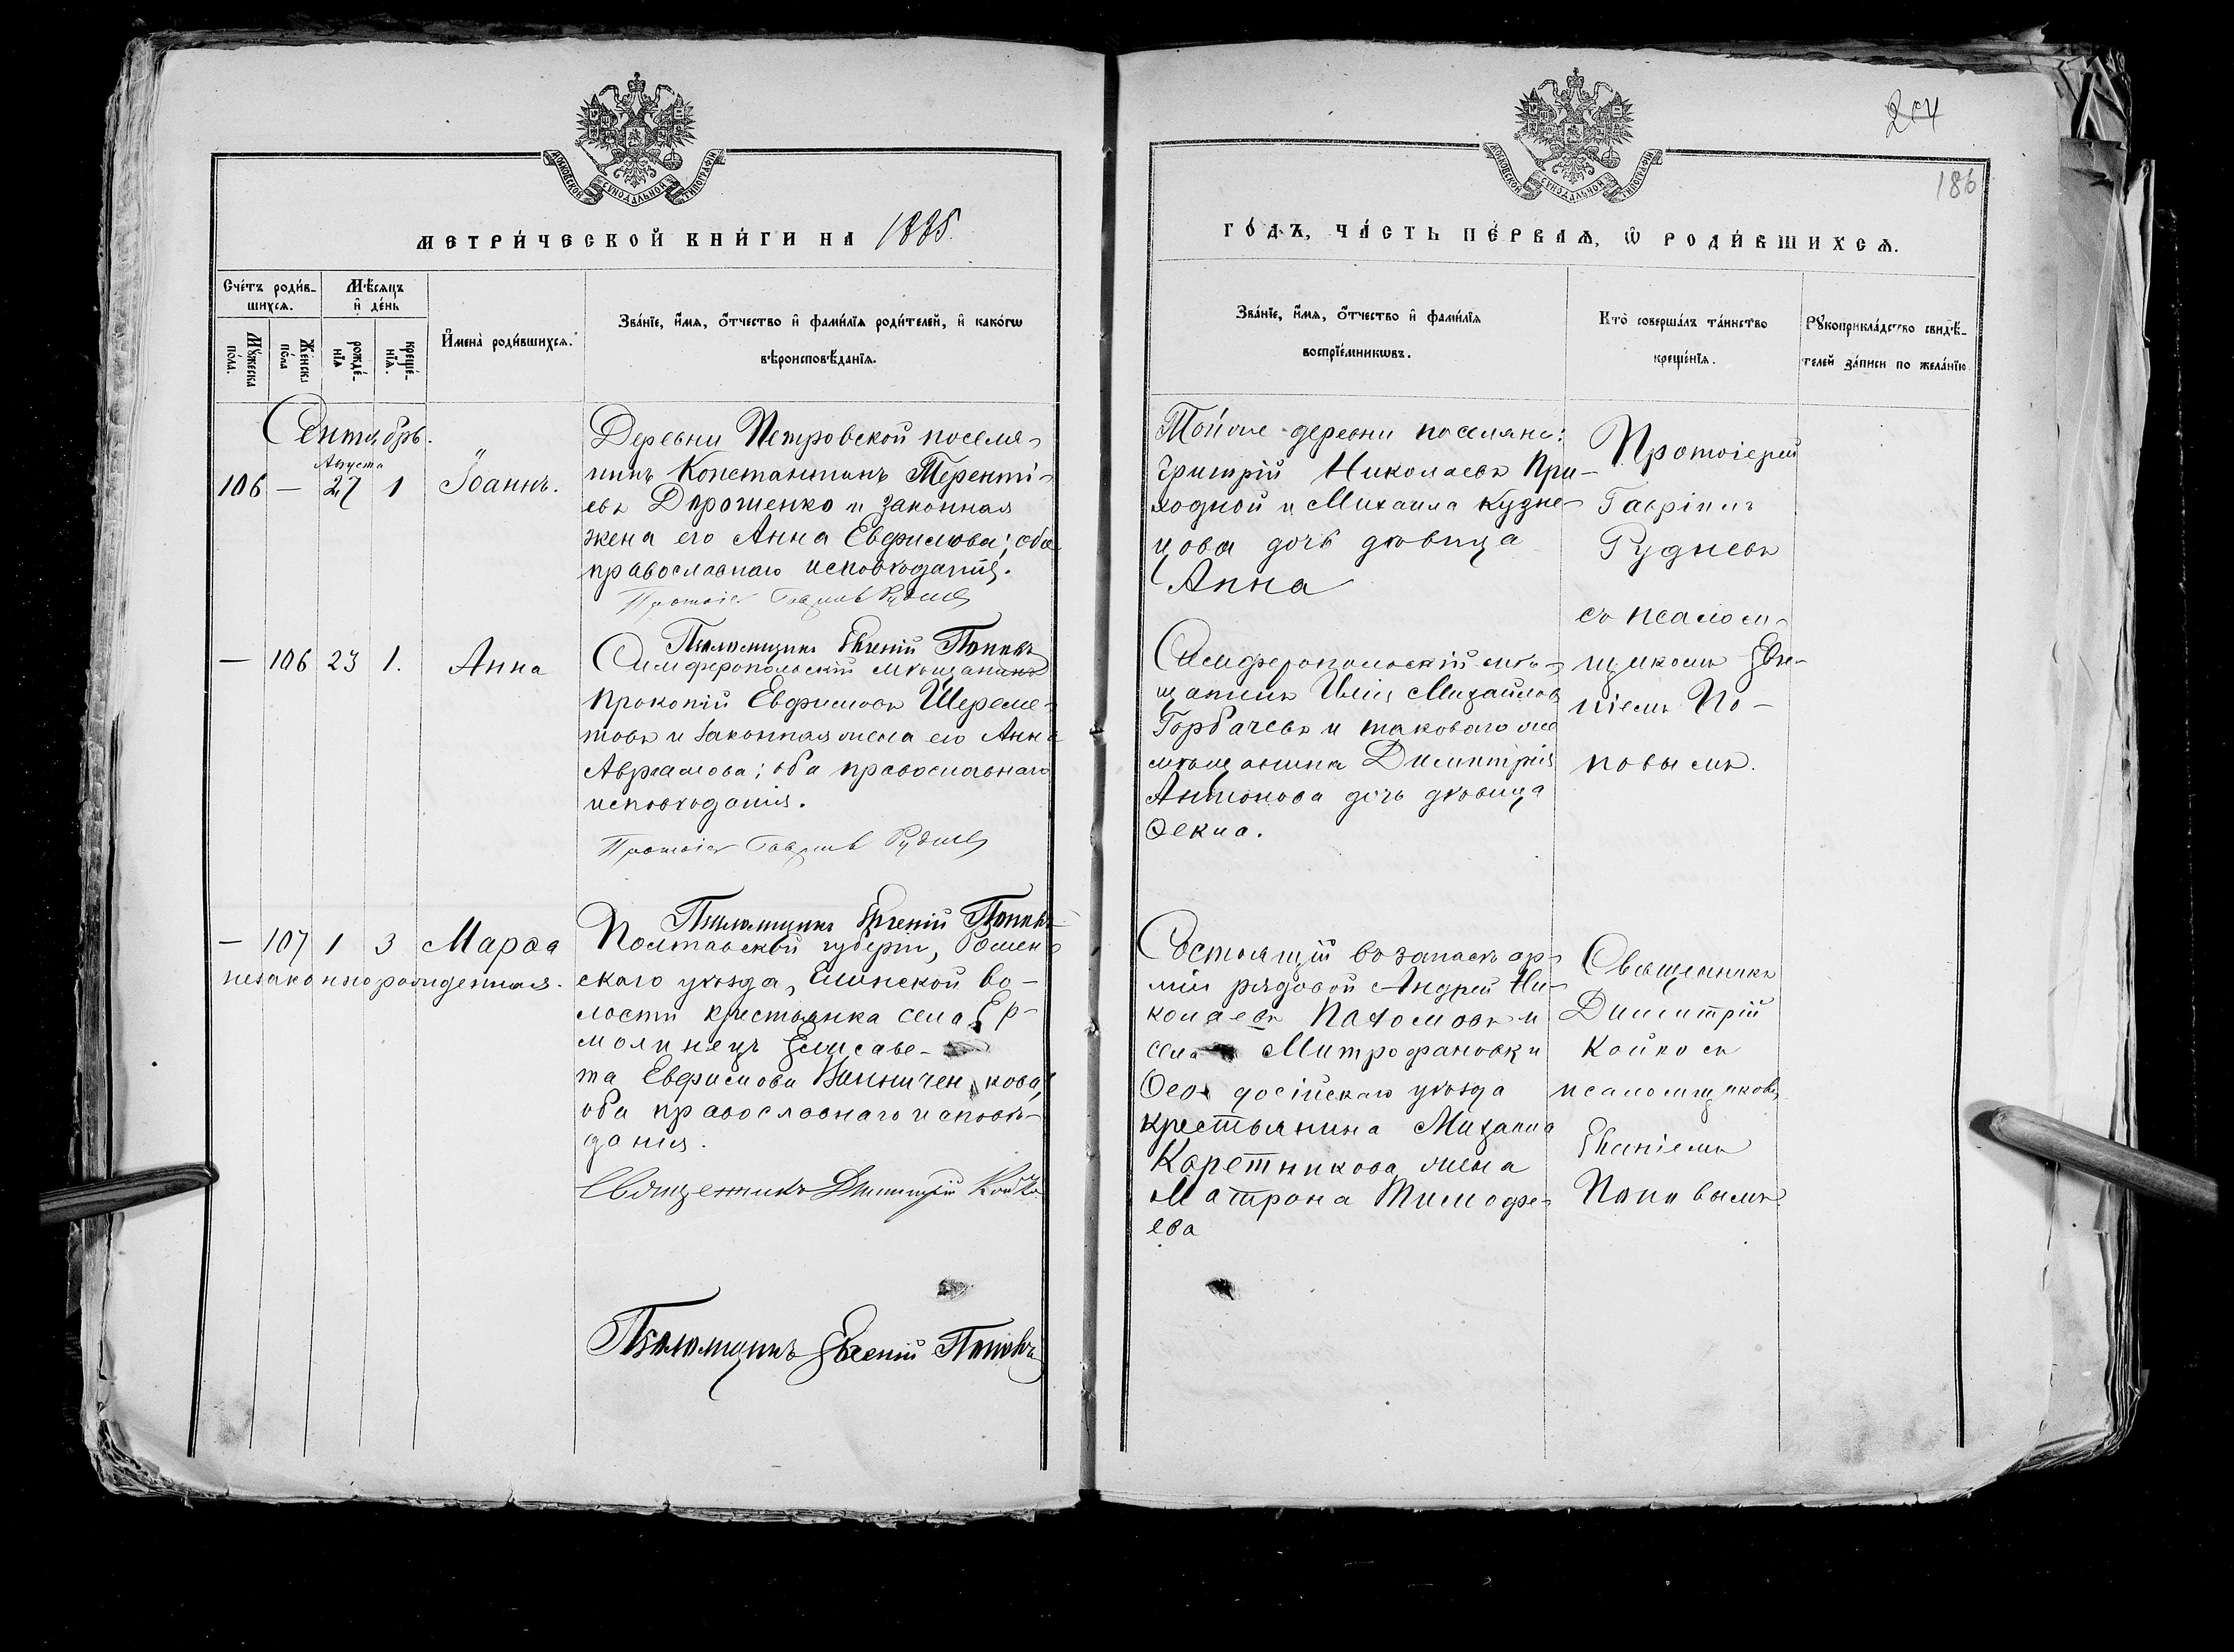 МОСКОВСКОЙ СѴНОДАЛЬНОЙ ТИПОГРАФІИ
МЕТРИ́ЧЕСКОЙ КНИ́ГИ НА 1885.
Сче́тъ роди́в-
шихсѧ.
Мѣ́сѧцъ
и҆ де́нь
Мꙋ́жеска
по́ла.
Же́нска
по́ла
рожде́-
нїѧ
креще́-
нїѧ.
И҆мена̀ роди́вшихсѧ.
Зва́нїе, и҆́мѧ, ѻ҆́тчество и҆ фами́лїѧ роди́телей, и҆ како́гѡ
вѣроисповѣ́данїѧ.
Сентябрь.
Августа
106 — 27 1 Іоаннъ.
Деревни Петровской поселя-
нинъ Константинъ Теренті-
евъ Дорошенко и законная
жена его Анна Евфимова; оба
православнаго исповѣданія.
Протоіер Гавріилъ Руднев
Псаломщикъ Евгеній Поповъ
— 106 23 1. Анна
Симферопольскій мѣщанинъ
Прокопій Евфимовъ Шереме-
товъ и законная жена его Анна
Авраамова; оба православнаго
исповѣданія.
Протоіер Гавріилъ Руднев
Псаломщикъ Евгеній Поповъ
— 107 1 3 Марѳа
незаконнорожденная.
Полтавской губерніи, Ромен-
скаго уѣзда, Смѣнской во-
лости крестьянка села Ер-
молинецъ Елисаве-
та Евфимова Винниченкова,
оба православнаго исповѣ-
данія.
Священникъ Димитрій Койко
Псаломщикъ Евгеній Поповъ
204
186
МОСКОВСКОЙ СѴНОДАЛЬНОЙ ТИПОГРАФІИ
ГО́ДЪ, ЧА́СТЬ ПЕ́РВАѦ, Ѽ РОДИ́ВШИХСѦ.
Зва́нїе, и҆́мѧ, ѻ҆́тчество и҆ фами́лїѧ
воспрїе́мникѡвъ.
Кто̀ соверша́лъ та́инство
креще́нїѧ.
Рꙋкоприкла́дство свидѣ́-
телей за́писи по жела́нїю
Той же деревни поселяне:
Григрій Николаевъ При-
ходной и Михаила Кузне-
цова дочь дѣвица
Анна
Протоіерей
Гавріилъ
Рудневъ
съ псалом-
щикомъ Евге-
ніемъ По-
повымъ.
Симферопольскій мѣ-
щанинъ Илія Михайловъ
Горбачевъ и таковаго же
мѣщанина Димитрія
Антонова дочь дѣвица
Ѳекла.
Состоящій въ запасѣ ар-
міи рядовой Андрей Ни-
колаевъ Пахомовъ и
села Митрофановки
Ѳеодосійскаго уѣзда
крестьянина Михаила
Каретникова жена
Матрона Тимофе-
ева
Священникъ
Димитрій
Койко съ
псаломщиковъ
Евгеніемъ
Поповымъ.